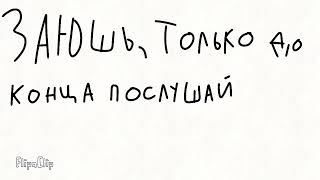 ЗАЮШЬ, ТОЛЬКО ДО
КОНЦА ПОСЛУШАЙ
FlipaClip